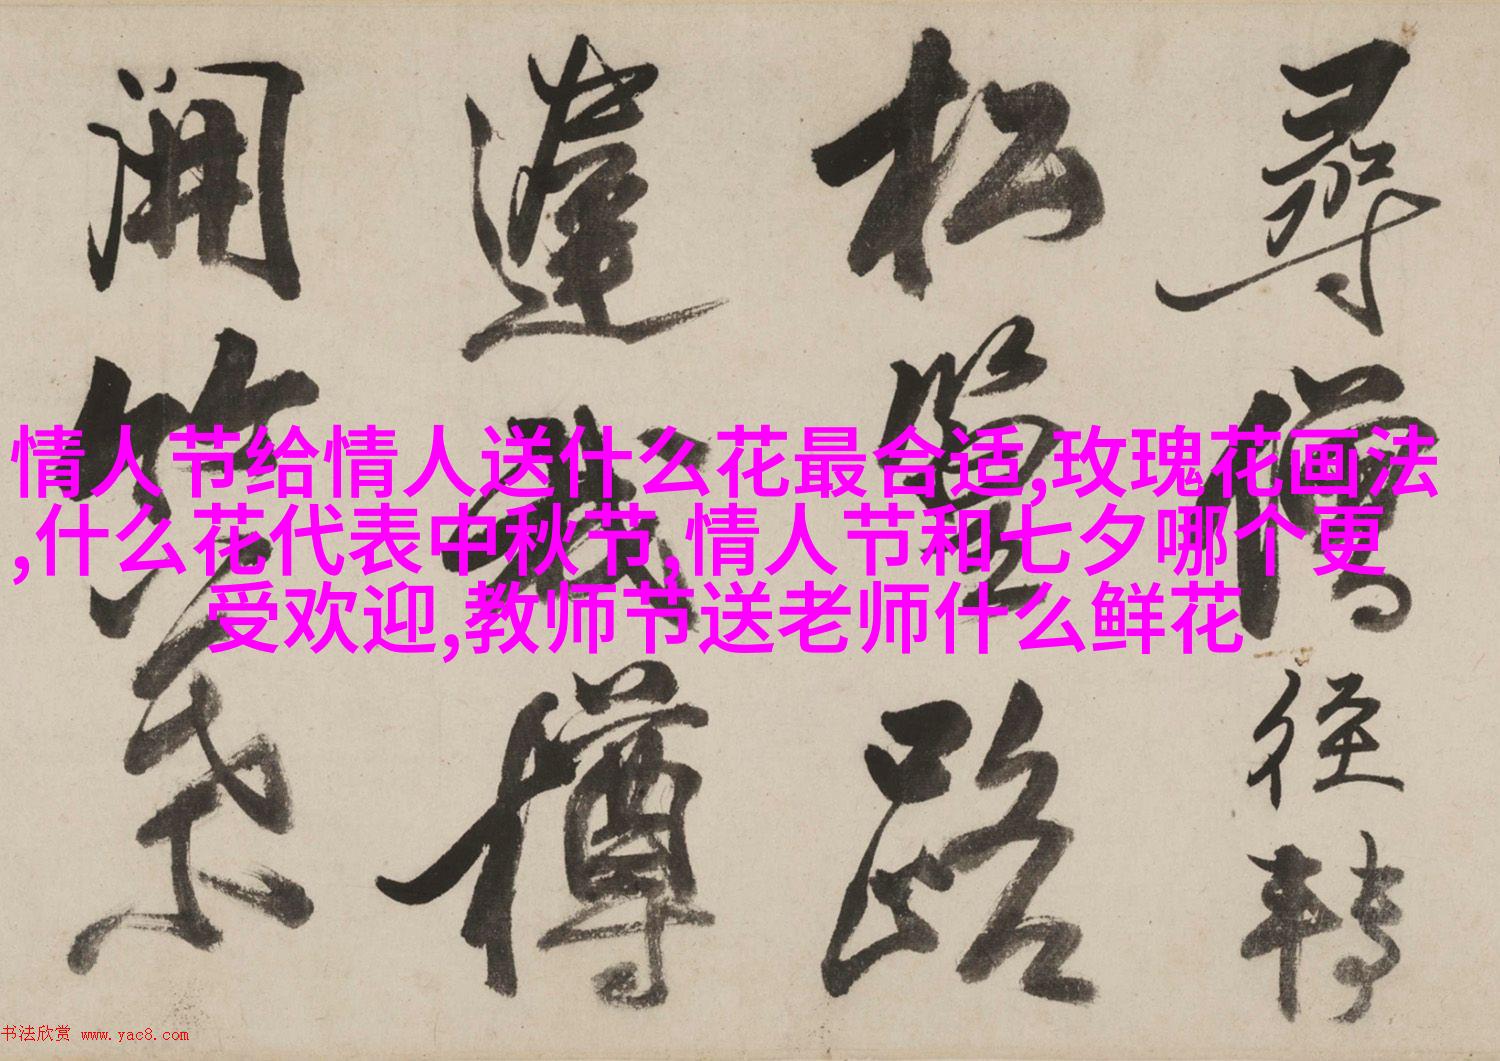 尋僧徑轉
松路
逢樽
開笑
情人节给情人送什么花最合适,玫瑰花画法
,什么花代表中秋节,情人节和七夕哪个更
受欢迎,教师节送老师什么鲜花
书法欣赏 www.yac8.com